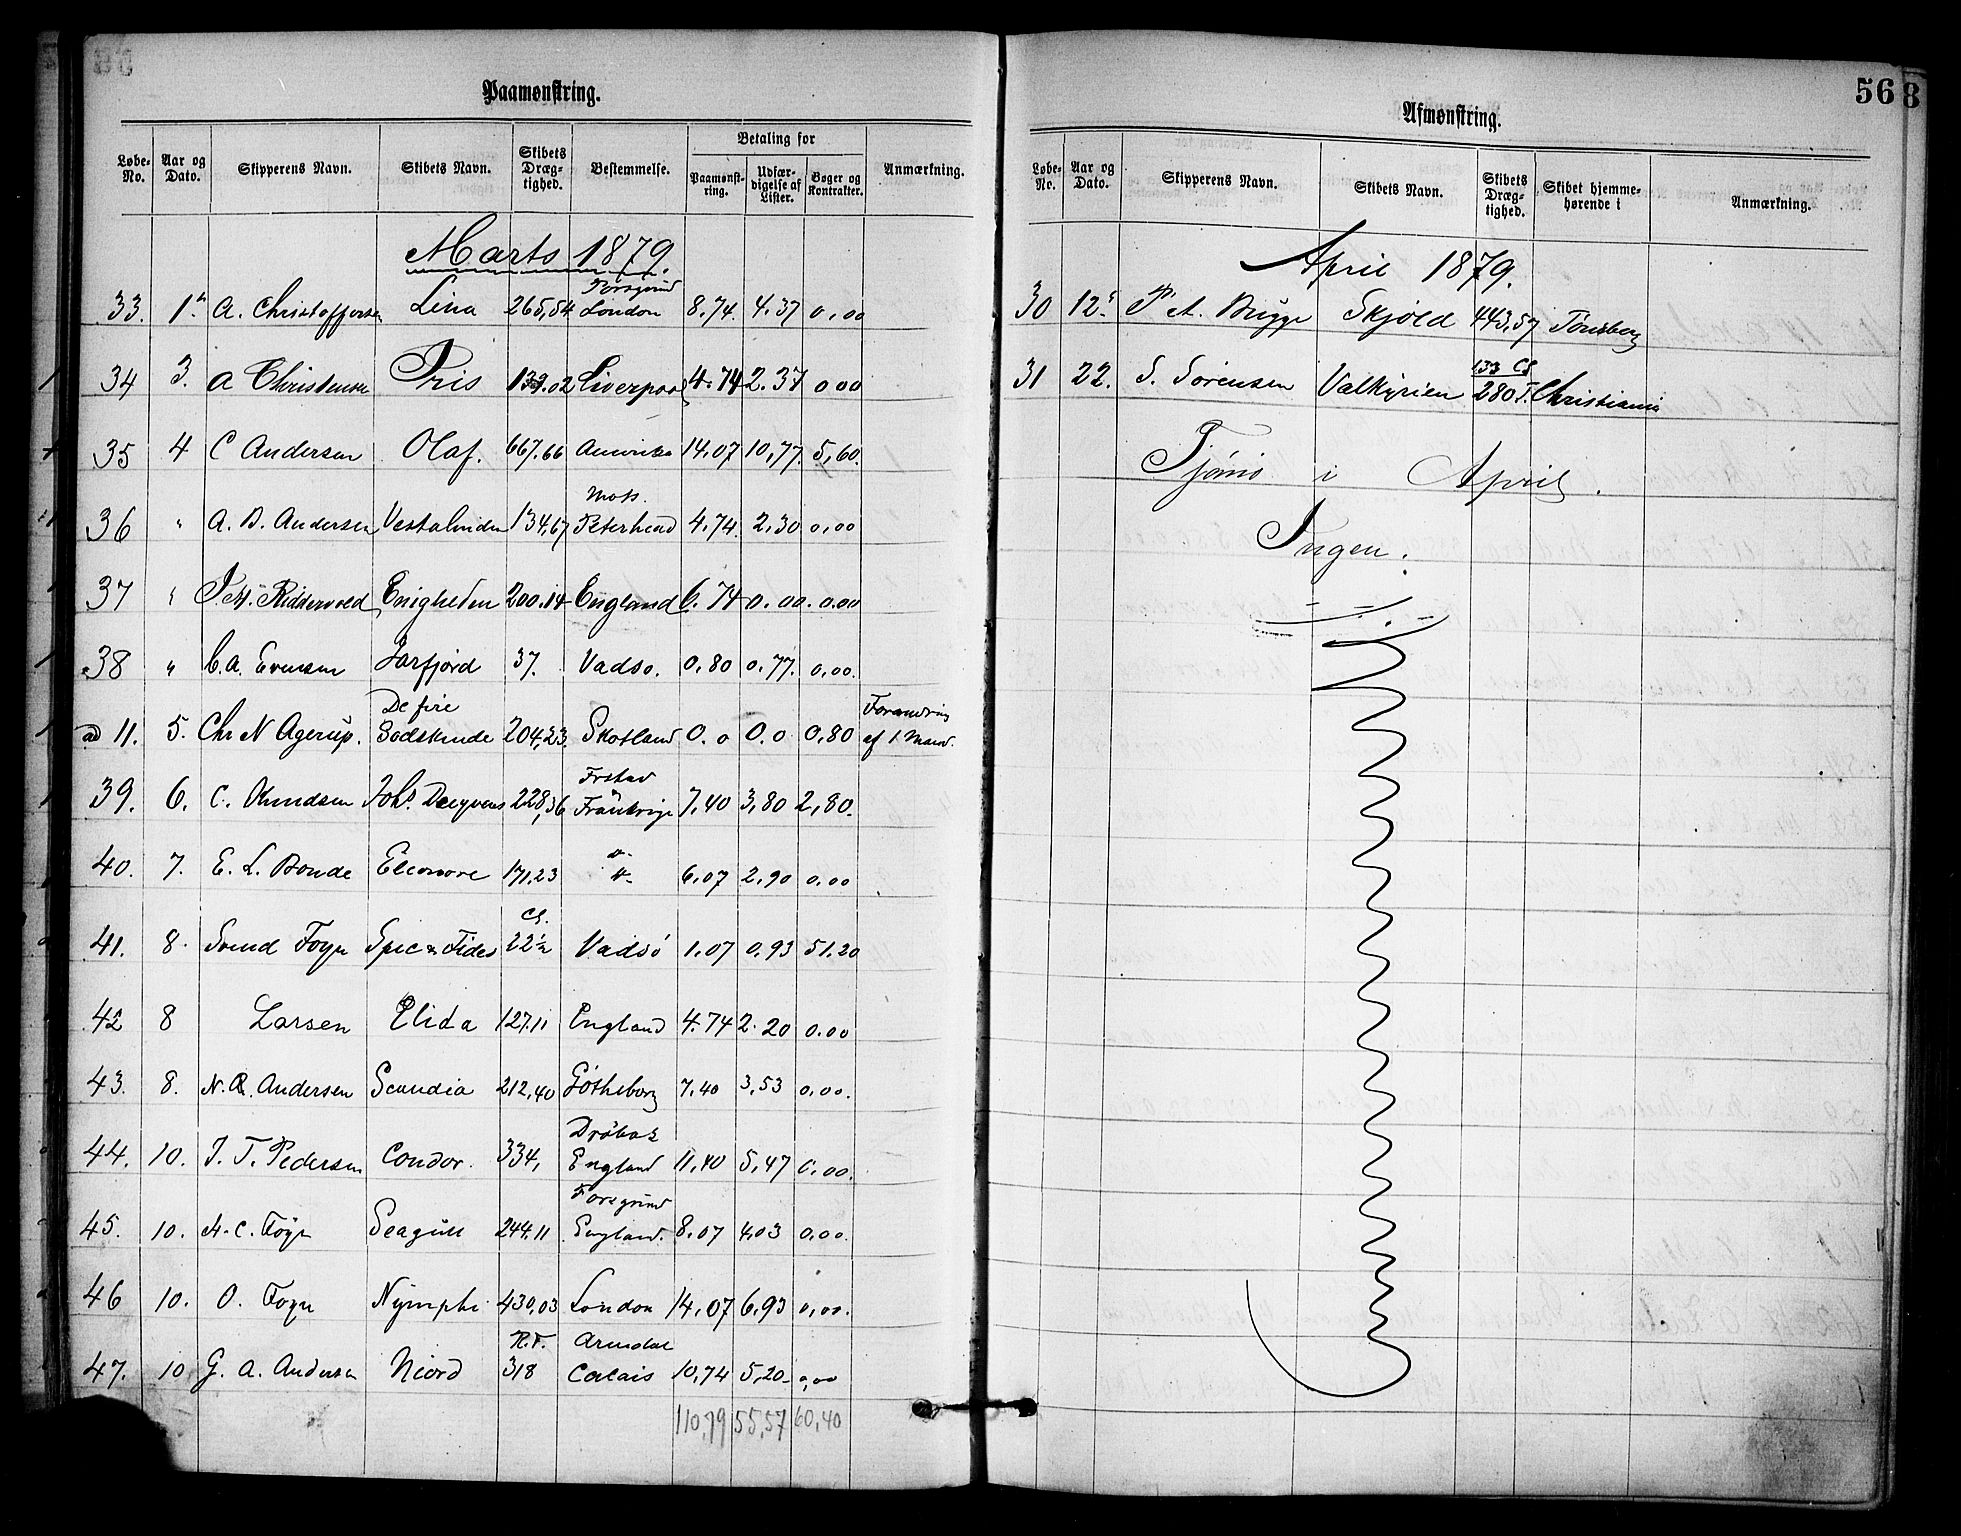 Paamønstring.
Løbe-No. Aar og Dato. Skipperens Navn. Skibets Navn. Skibets Dræg-tighed. Bestemmelse. Betaling for Paamønst-ring. Udfær-digelse af Lister. Bøger og Kontrakter. Anmærkning.
Marts 1879.
Porsgrund
33. 1 A. Christoffersen Lina 265,54 London 8,74. 4.37 0,00
34 3. A Christensen Iris 139.02 Liverpool 4.74 2.37 0 00
35 4 C Andersen Olaf. 667.66 Amerika 14,07 10,77. 5,60.
Moss.
36 " A. B. Andersen Vestalinden 134,67 Peterhead 4.74. 2,30 0,00
37 " Riddervold Enigheden 200.14 England 6.74 0.00. 0.00
38 " C. A. Evensen Jarfjord 37. Vadsø. 0,80 0,77. 0,00.
De fire Forandring
ad 11. 5. Chr N Agerup. Sødskende 204,23. Skotland 0.0 0.0 0,80 af 1 Mand.
39. 6. C. Knudsen Johs 228,36 Frankrige 7,40 3,80 2,80.
40. 7. E. L. Bonde Eleonore 171,23 6,07 2,90 0,00
Cl.
41. 8. Svend Foyn Spes & Fides 22½ Vadsø 1,07 0,93 51.20
42 8 Larsen Elida 127.11 England 4.74 2.20 0.00
43. 8. N. R. Andersen Scandia 212,40 Götheborg 7,40 3,53 0,00.
Drøbak
44. 10. J. T. Pedersen Condor. 334, England 11,40 5,47 0,00.
Porsgrund
45. 10. N. C. Føyn Seagull 244,11 England. 8,07 4,03 0,00.
46 10. O. Foyn Nymphe 430,03 London 14,07 6,93 0,00.
R.T. Arendal
47. 10 G. A. Andersen Niord 318 Calais 10,74 5,20 0,00
110,79 55,57 60,40
568
Afmønstring.
Løbe-No. Aar og Dato. Skipperens Navn. Skibets Navn. Skibets Dræg-tighed. Skibet hjemme-hørende i Anmærkning.
April 1879.
30 12. P A. Brygge Skjold 443,57 Tønsberg
133 Cl
31 22. S. Sørensen Valkyrien 280 T. Christiania
Tjømø i April.
Ingen.